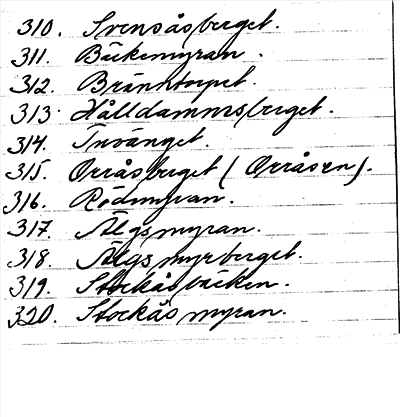 310. Svensåsberget.
311. Bäckemyran.
312. Bränntorpet.
313. Hålldammsberget.
314. Tvöänget.
315. Orråsberget (Orråsen).
316. Rödmyran.
317. Älgsmyran.
318. Älgsmyrberget.
319. Stockåsbäcken.
320. Stockåsmyran.